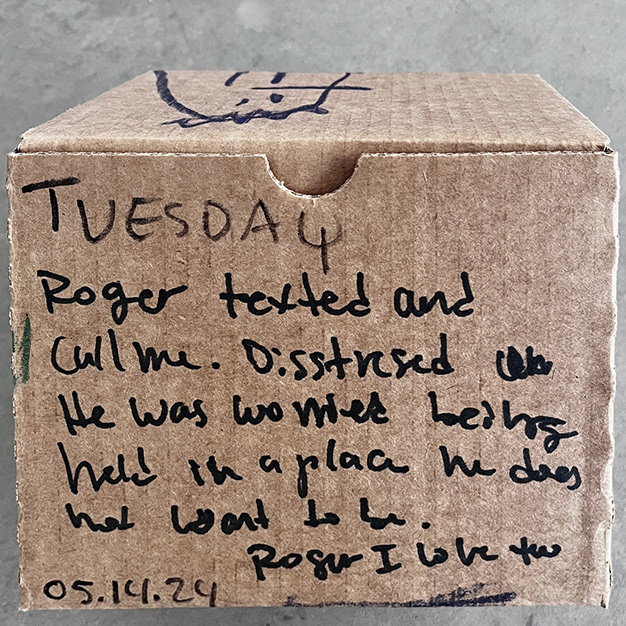 TUESDAY
Roger texted and
Call me. Disstresed
He was worried being
held in a place he does
not want to be.
Roger I love
05.14.24